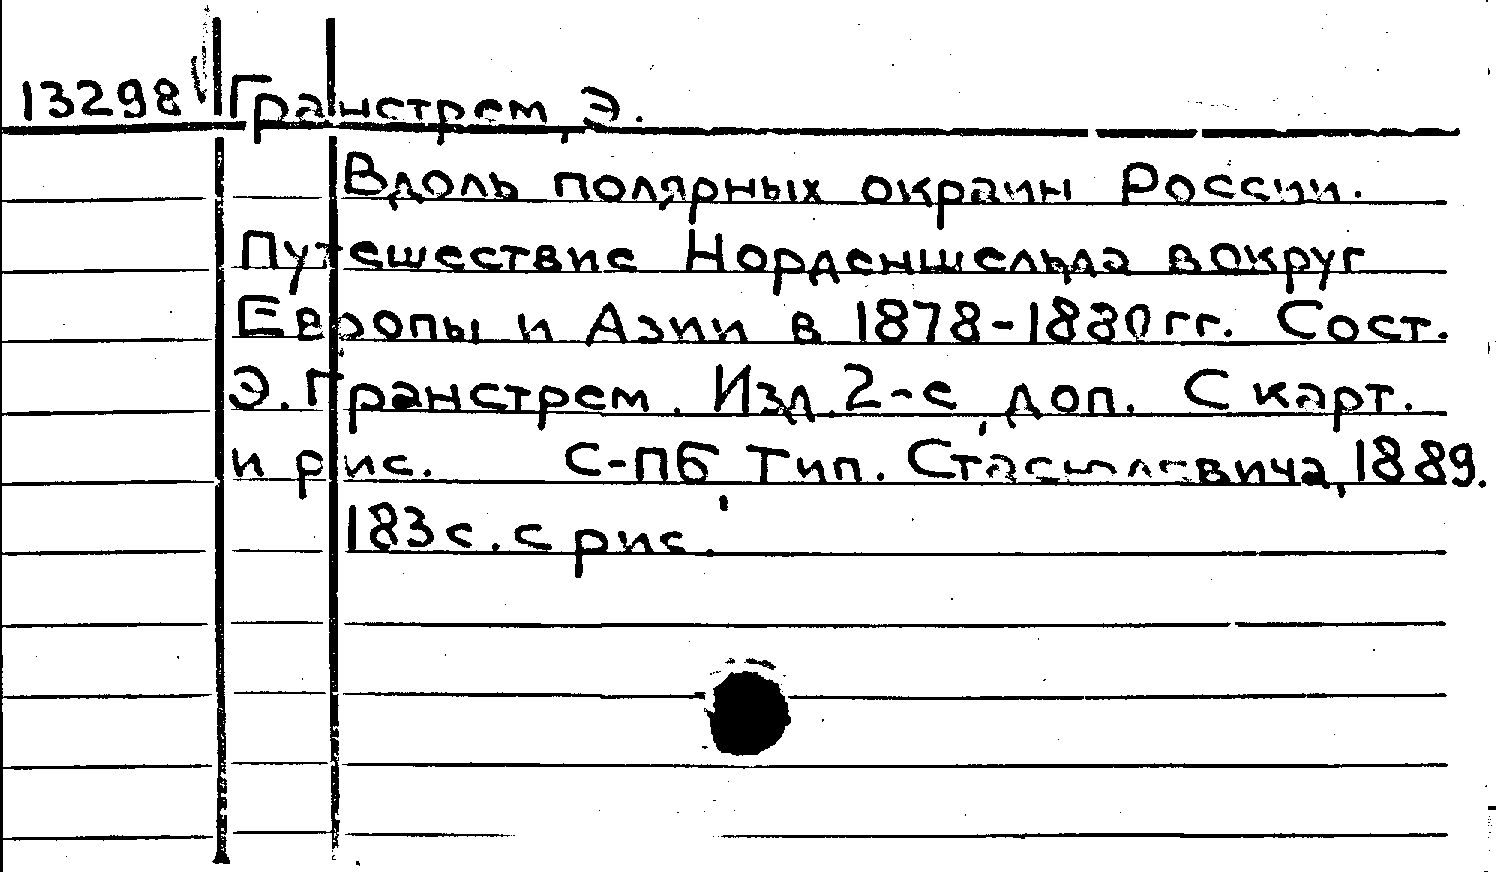 13298 Гранстрем, Э.
Вдоль полярных окраин России.
Путешествие Норденшельда вокруг
Европы и Азии в 1878-1880 гг. Сост.
Э. Гранстрем. Изд. 2-е, доп. С карт.
и рис. С-Пб, Тип. Стасюлевича, 1889.
183 с. с рис.